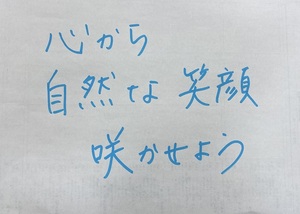 心から
自然な笑顔
咲かせよう